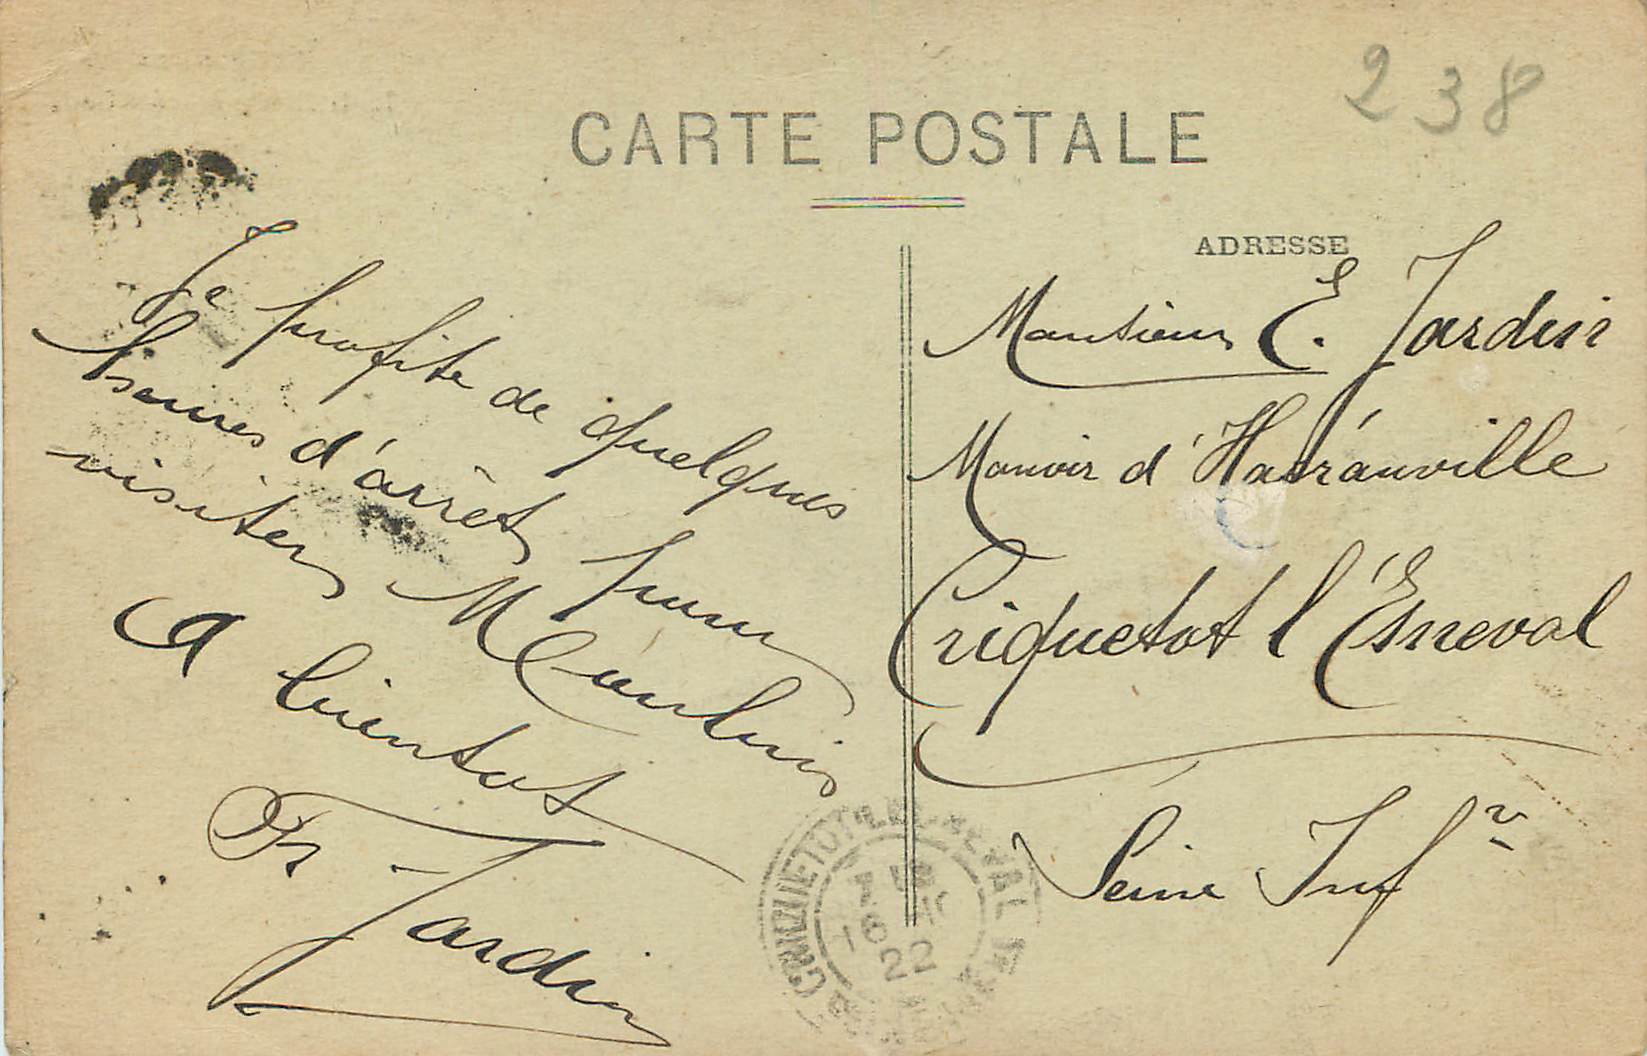 238
CARTE POSTALE
Je profite de quelques
heures d'arrêt pour
visiter Moulins
A bientot
Fr Jardin
ADRESSE
Monsieur E. Jardin
Manoir d'Hatranville
Criquetot l'Esneval
Seine Infre
22